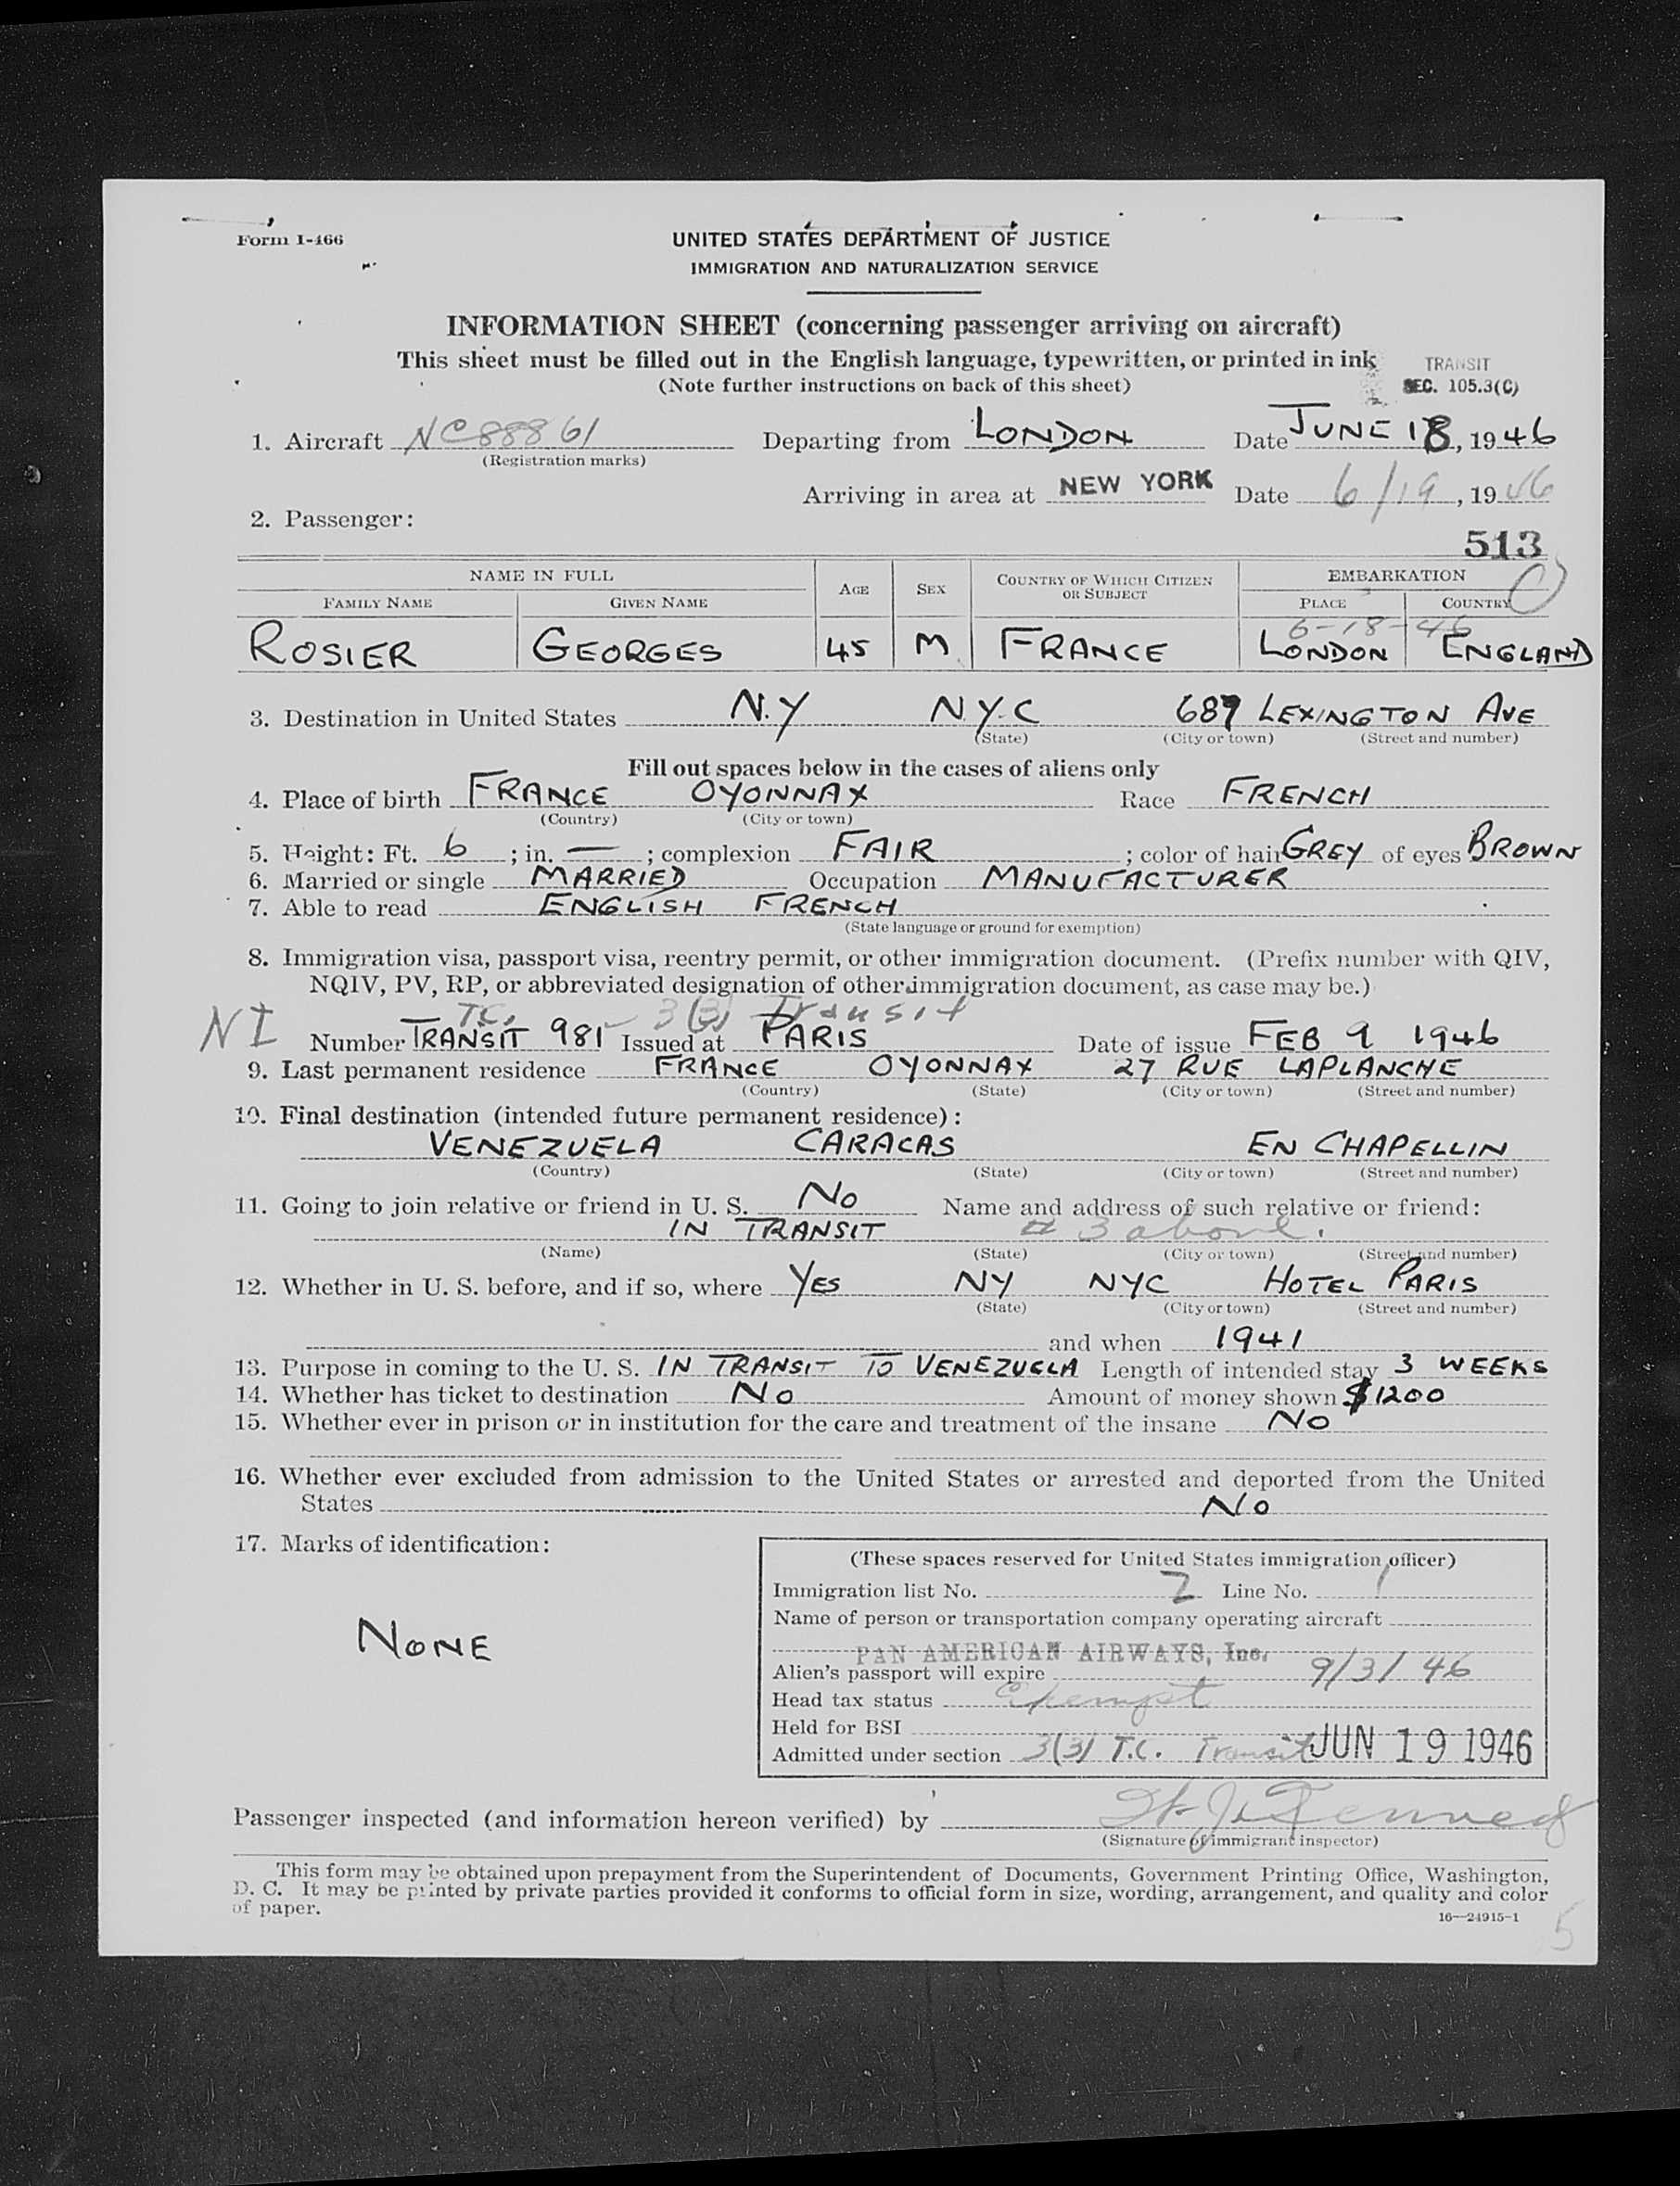 Form I-466
UNITED STATES DEPARTMENT OF JUSTICE
IMMIGRATION AND NATURALIZATION SERVICE
INFORMATION SHEET (concerning passenger arriving on aircraft)
This sheet must be filled out in the English language, typewritten, or printed in ink
TRANSIT
(Note further instructions on back of this sheet)
SEC. 105.3(C)
1. Aircraft NC88861 Departing from LONDON Date JUNE 18, 1946
(Registration marks)
Arriving in area at NEW YORK Date 6/19, 1946
2. Passenger:
513
NAME IN FULL AGE SEX COUNTRY OF WHICH CITIZEN OR SUBJECT EMBARKATION
FAMILY NAME GIVEN NAME PLACE COUNTRY
6-18-46
ROSIER GEORGES 45 M FRANCE LONDON ENGLAND
3. Destination in United States N.Y N.Y.C 687 LEXINGTON AVE
(State) (City or town) (Street and number)
Fill out spaces below in the cases of aliens only
4. Place of birth FRANCE OYONNAX Race FRENCH
(Country) (City or town)
5. Height: Ft. 6 ; in. — ; complexion FAIR ; color of hair GREY of eyes BROWN
6. Married or single MARRIED Occupation MANUFACTURER
7. Able to read ENGLISH FRENCH
(State language or ground for exemption)
8. Immigration visa, passport visa, reentry permit, or other immigration document. (Prefix number with QIV,
NQIV, PV, RP, or abbreviated designation of other immigration document, as case may be.)
T.C. 3(3) Transit
NI Number TRANSIT 981 Issued at PARIS Date of issue FEB 9 1946
9. Last permanent residence FRANCE OYONNAX 27 RUE LAPLANCHE
(Country) (State) (City or town) (Street and number)
10. Final destination (intended future permanent residence):
VENEZUELA CARACAS EN CHAPELLIN
(Country) (State) (City or town) (Street and number)
11. Going to join relative or friend in U. S. NO Name and address of such relative or friend:
IN TRANSIT # 3 above.
(Name) (State) (City or town) (Street and number)
12. Whether in U. S. before, and if so, where YES NY NYC HOTEL PARIS
(State) (City or town) (Street and number)
and when 1941
13. Purpose in coming to the U. S. IN TRANSIT TO VENEZUELA Length of intended stay 3 WEEKS
14. Whether has ticket to destination NO Amount of money shown $1200
15. Whether ever in prison or in institution for the care and treatment of the insane NO
16. Whether ever excluded from admission to the United States or arrested and deported from the United
States NO
17. Marks of identification:
NONE
(These spaces reserved for United States immigration officer)
Immigration list No. 2 Line No. 1
Name of person or transportation company operating aircraft
PAN AMERICAN AIRWAYS, Inc.
Alien's passport will expire 9/3/46
Head tax status Exempt
Held for BSI
Admitted under section 3(3) T.C. Transit JUN 19 1946
Passenger inspected (and information hereon verified) by
(Signature of immigrant inspector)
This form may be obtained upon prepayment from the Superintendent of Documents, Government Printing Office, Washington,
D. C. It may be printed by private parties provided it conforms to official form in size, wording, arrangement, and quality and color
of paper.
16—24915-1
5